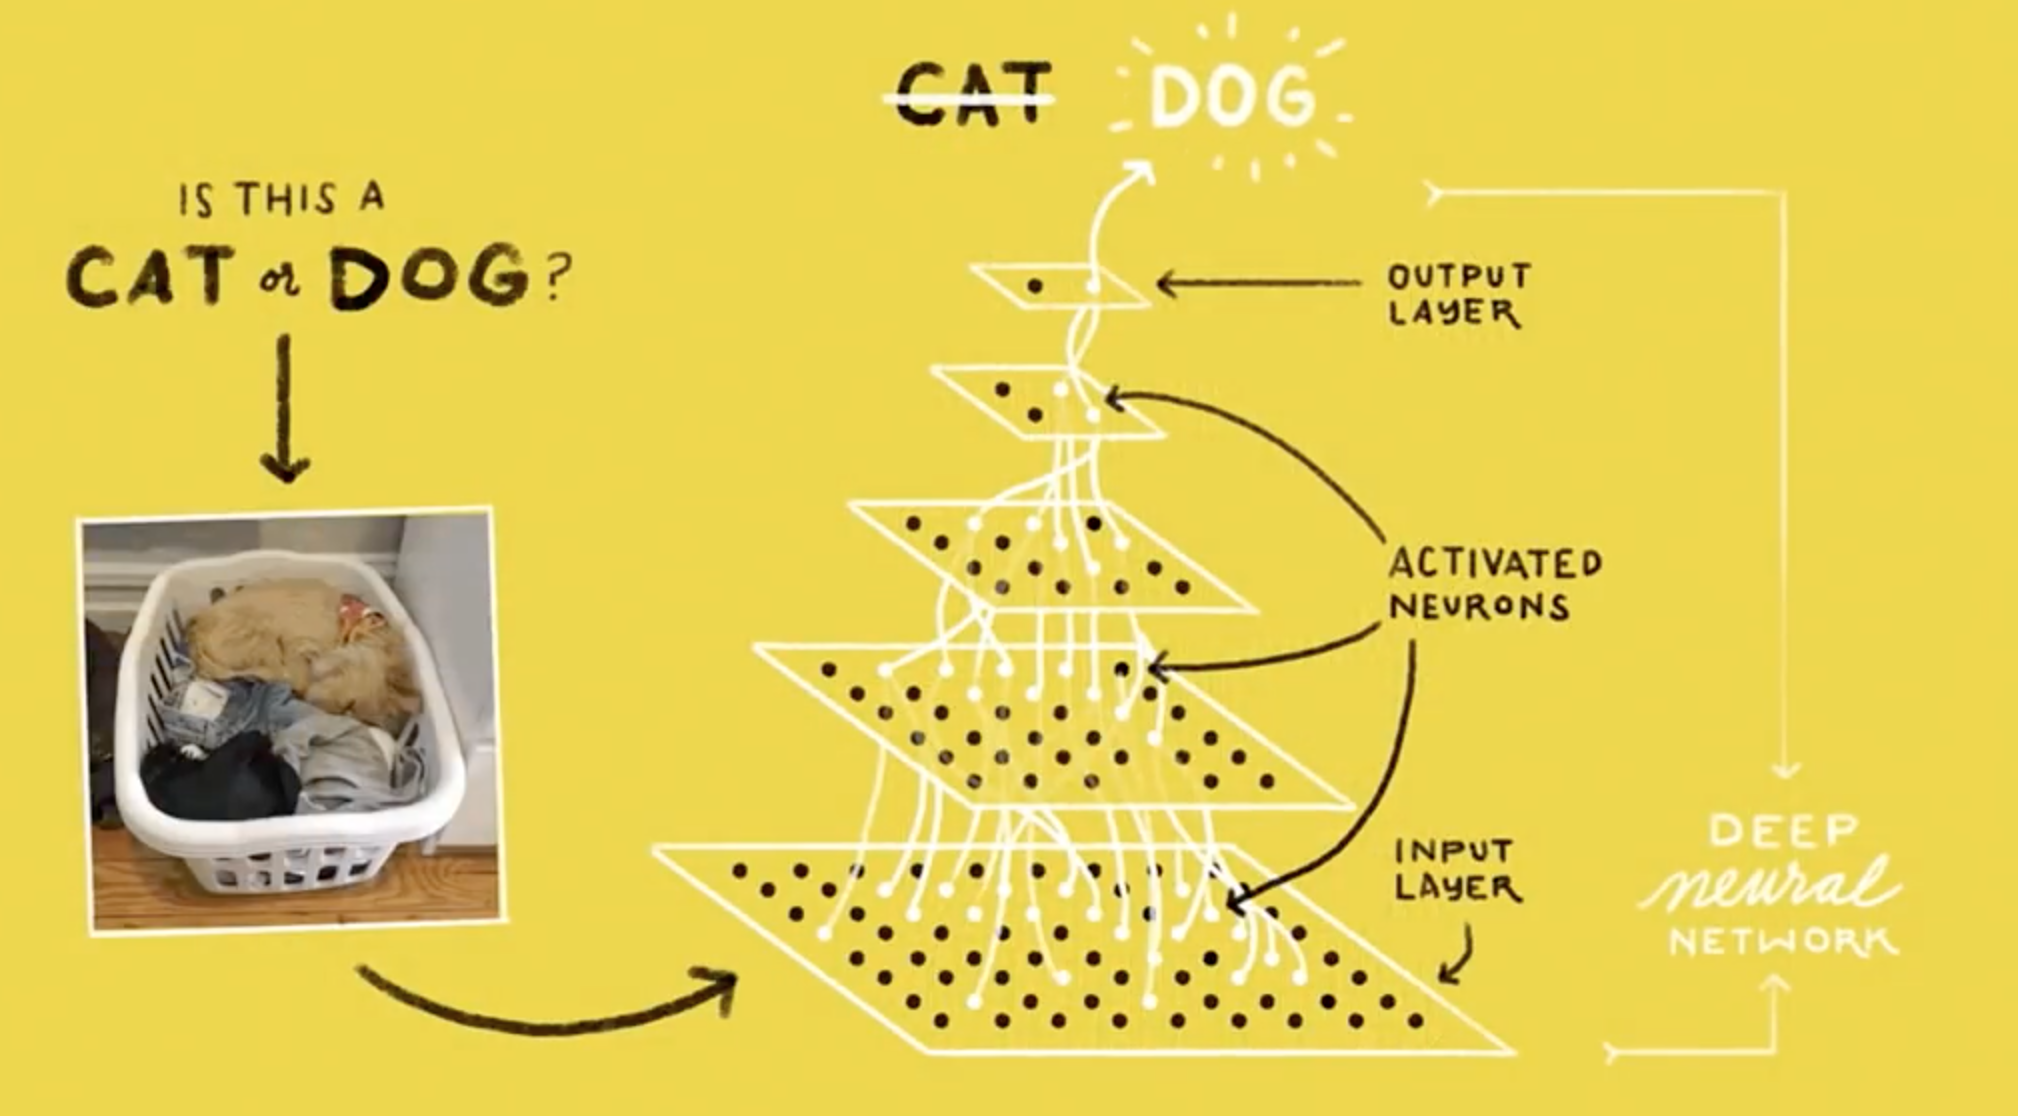 IS THIS A
CAT or DOG?
CAT DOG
OUTPUT
LAYER
ACTIVATED
NEURONS
INPUT
LAYER
DEEP
neural
NETWORK